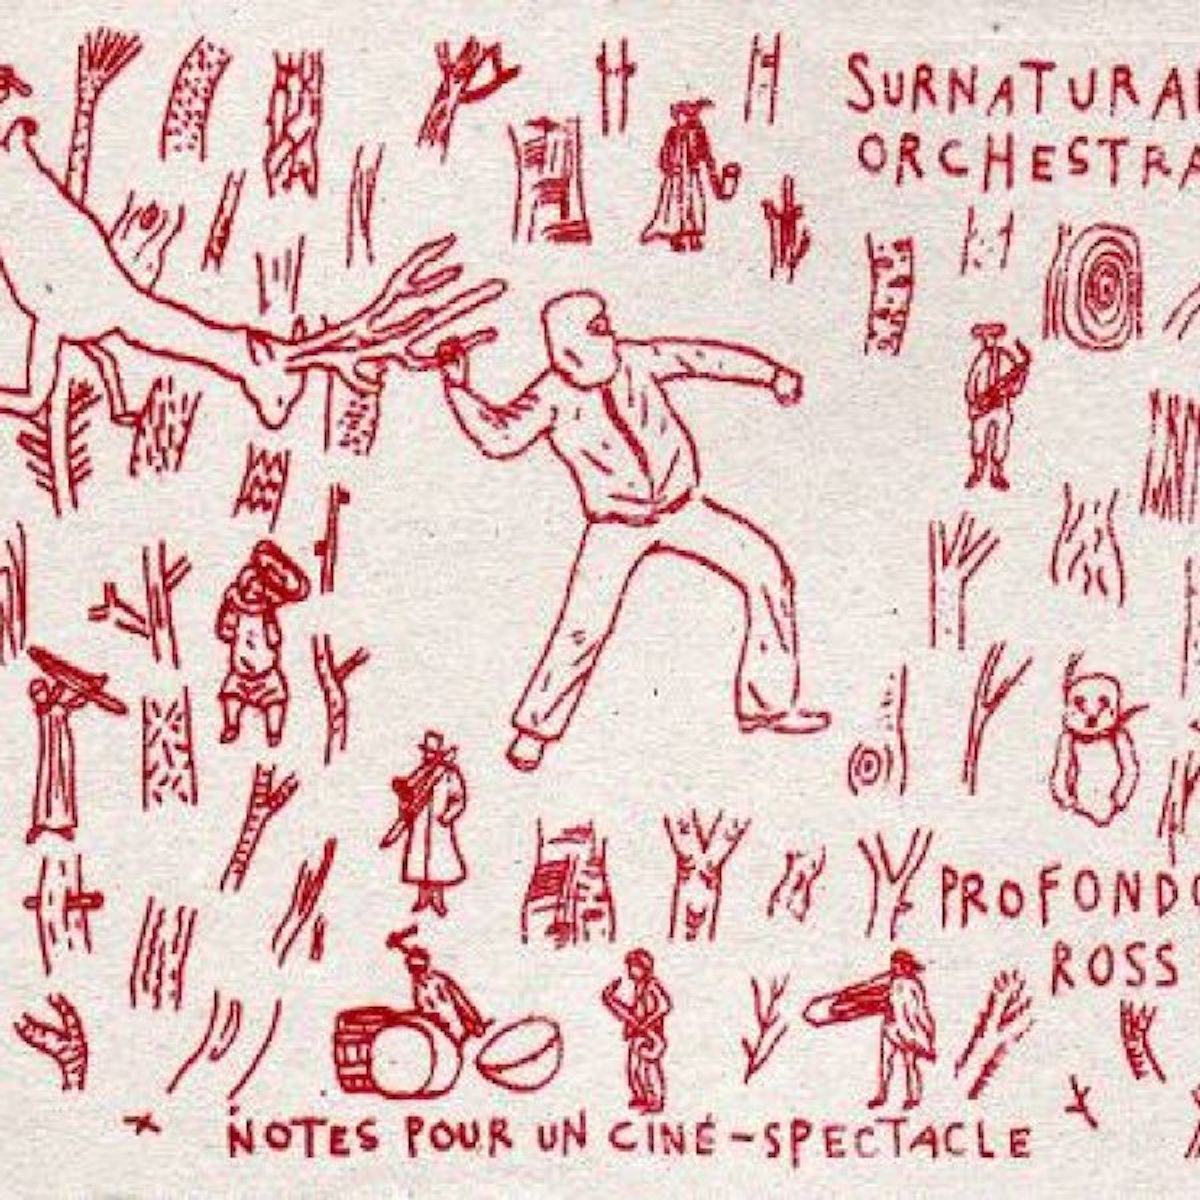 SURNATURA
ORCHESTRA
PROFONDO
ROSS
NOTES POUR UN CINÉ-SPECTACLE